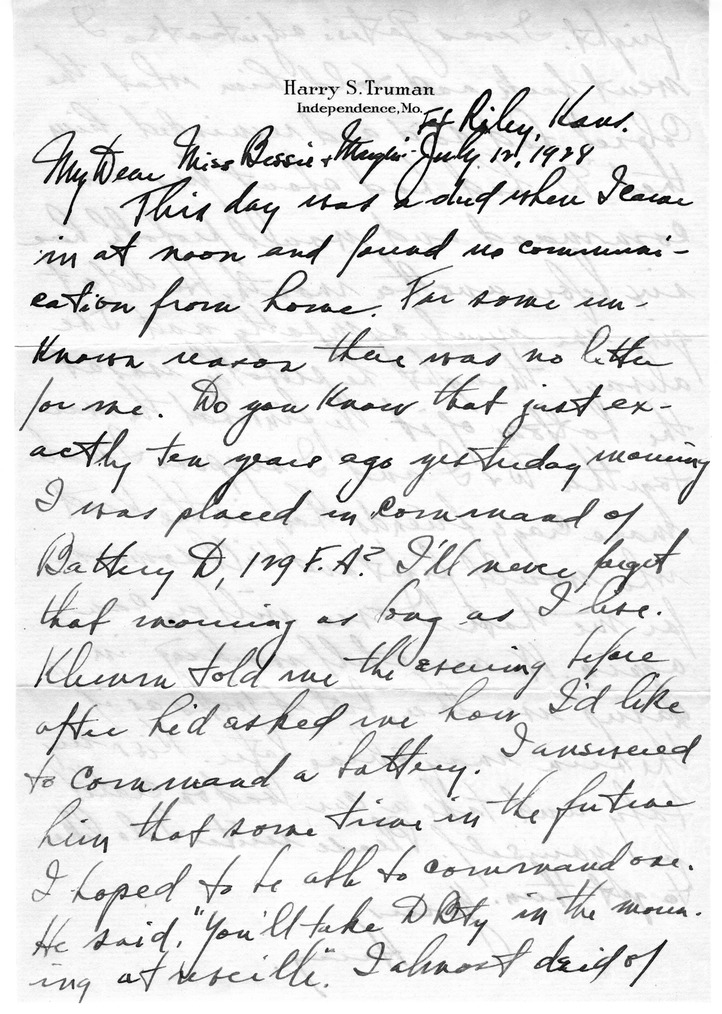 Harry S. Truman
Independence, Mo.
Fort Riley, Kans.
July 12, 1928
My Dear Miss Bessie & Margie:-
This day was a dud when I came
in at noon and found no communi-
cation from home. For some un-
known reason there was no letter
for me. Do you know that just ex-
actly ten years ago yesterday morning
I was placed in command of
Battery D, 129 F.A? I'll never forget
that morning as long as I live.
Klemm told me the evening before
after he'd asked me how I'd like
to command a battery. I answered
him that some time in the future
I hoped to be able to command one.
He said, "You'll take D Bty in the morn-
ing at reveille". I almost died of